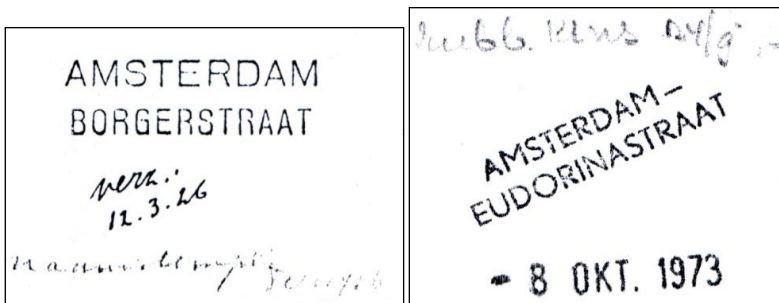 AMSTERDAM
BORGERSTRAAT
verz.:
12.3.26
naamstempel
rubb.
AMSTERDAM—
EUDORINASTRAAT
- 8 OKT. 1973